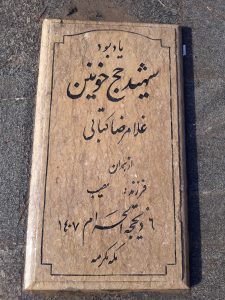 یادبود
شهید حج خونین
غلامرضا کتابی
از تهران
فرزند: یعقوب
۶ ذیحجه الحرام ۱۴۰۷
مکه مکرمه